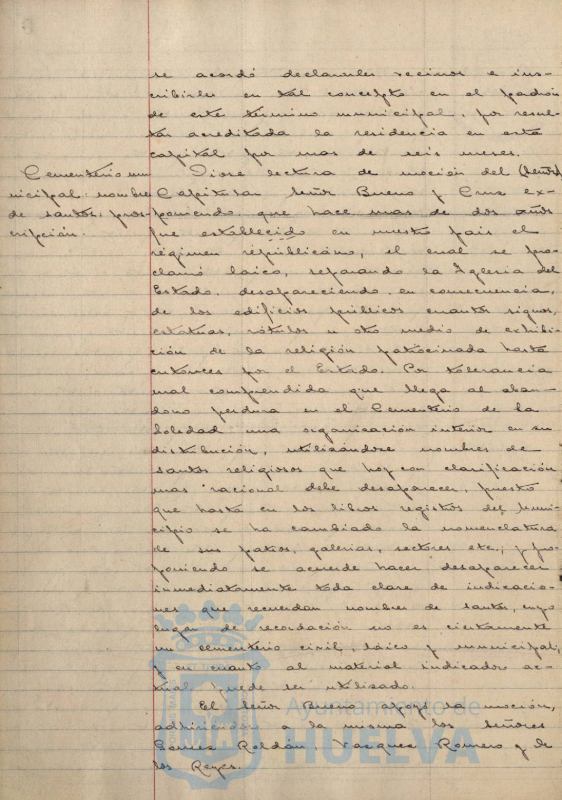 se acordó declararles vecinos e ins-
cribirles en tal concepto en el padrón
de este término municipal, por resul-
tar acreditada la residencia en esta
capital por mas de seis meses.
Cementerio mu
nicipal: nombre
de santos: pros-
cripción.
Diose lectura de moción del (Señor)
Capitular Señor Bueno y Cruz ex-
poniendo que hace mas de dos años
fue establecido en nuestro pais el
régimen républicano, el cual se pro-
clamó láico, separando la Iglesia del
Estado, desapareciendo en consecuencia,
de los edificios públicos cuantos signos,
estatuas, rótulos u otro medio de exhibi-
ción de la religión patrocinada hasta
entonces por el Estado. Por tolerancia
mal comprendida que llega al aban-
dono perdura en el Cementerio de la
Soledad una organización interior en su
distribución, utilizándose nombres de
santos religiosos que hoy con clarificación
mas racional debe desaparecer, puesto
que hasta en los libros registros del Muni-
cipio se ha cambiado la nomenclatura
de sus patios, galerias, sectores etc., y pro-
poniendo se acuerde hacer desaparecer
inmediatamente toda clase de indicacio-
nes que recuerdan nombres de santos, cuyo
lugar de recordación no es ciertamente
un cementerio civil, láico y municipal,
y en cuanto al material indicador ac-
tual puede ser utilizado.
El Señor Bueno apoyó la moción,
adhiriendose a la misma los Señores
Gomez Roldán, Vazquez Romero y de
los Reyes.
Ayuntamiento de
HUELVA